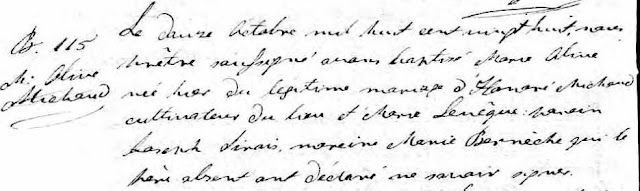 B. 115
M. Olive
Michaud
Le douze Octobre mil huit cent vingt huit, nous
Prêtre soussigné avons baptisé Marie Olive
née hier du légitime mariage d'Honoré Michaud
cultivateur du lieu et Marie Levêque: parain
Joseph Sirais, mareine Marie Bernèche qui le
père absent ont déclaré ne savoir signer.